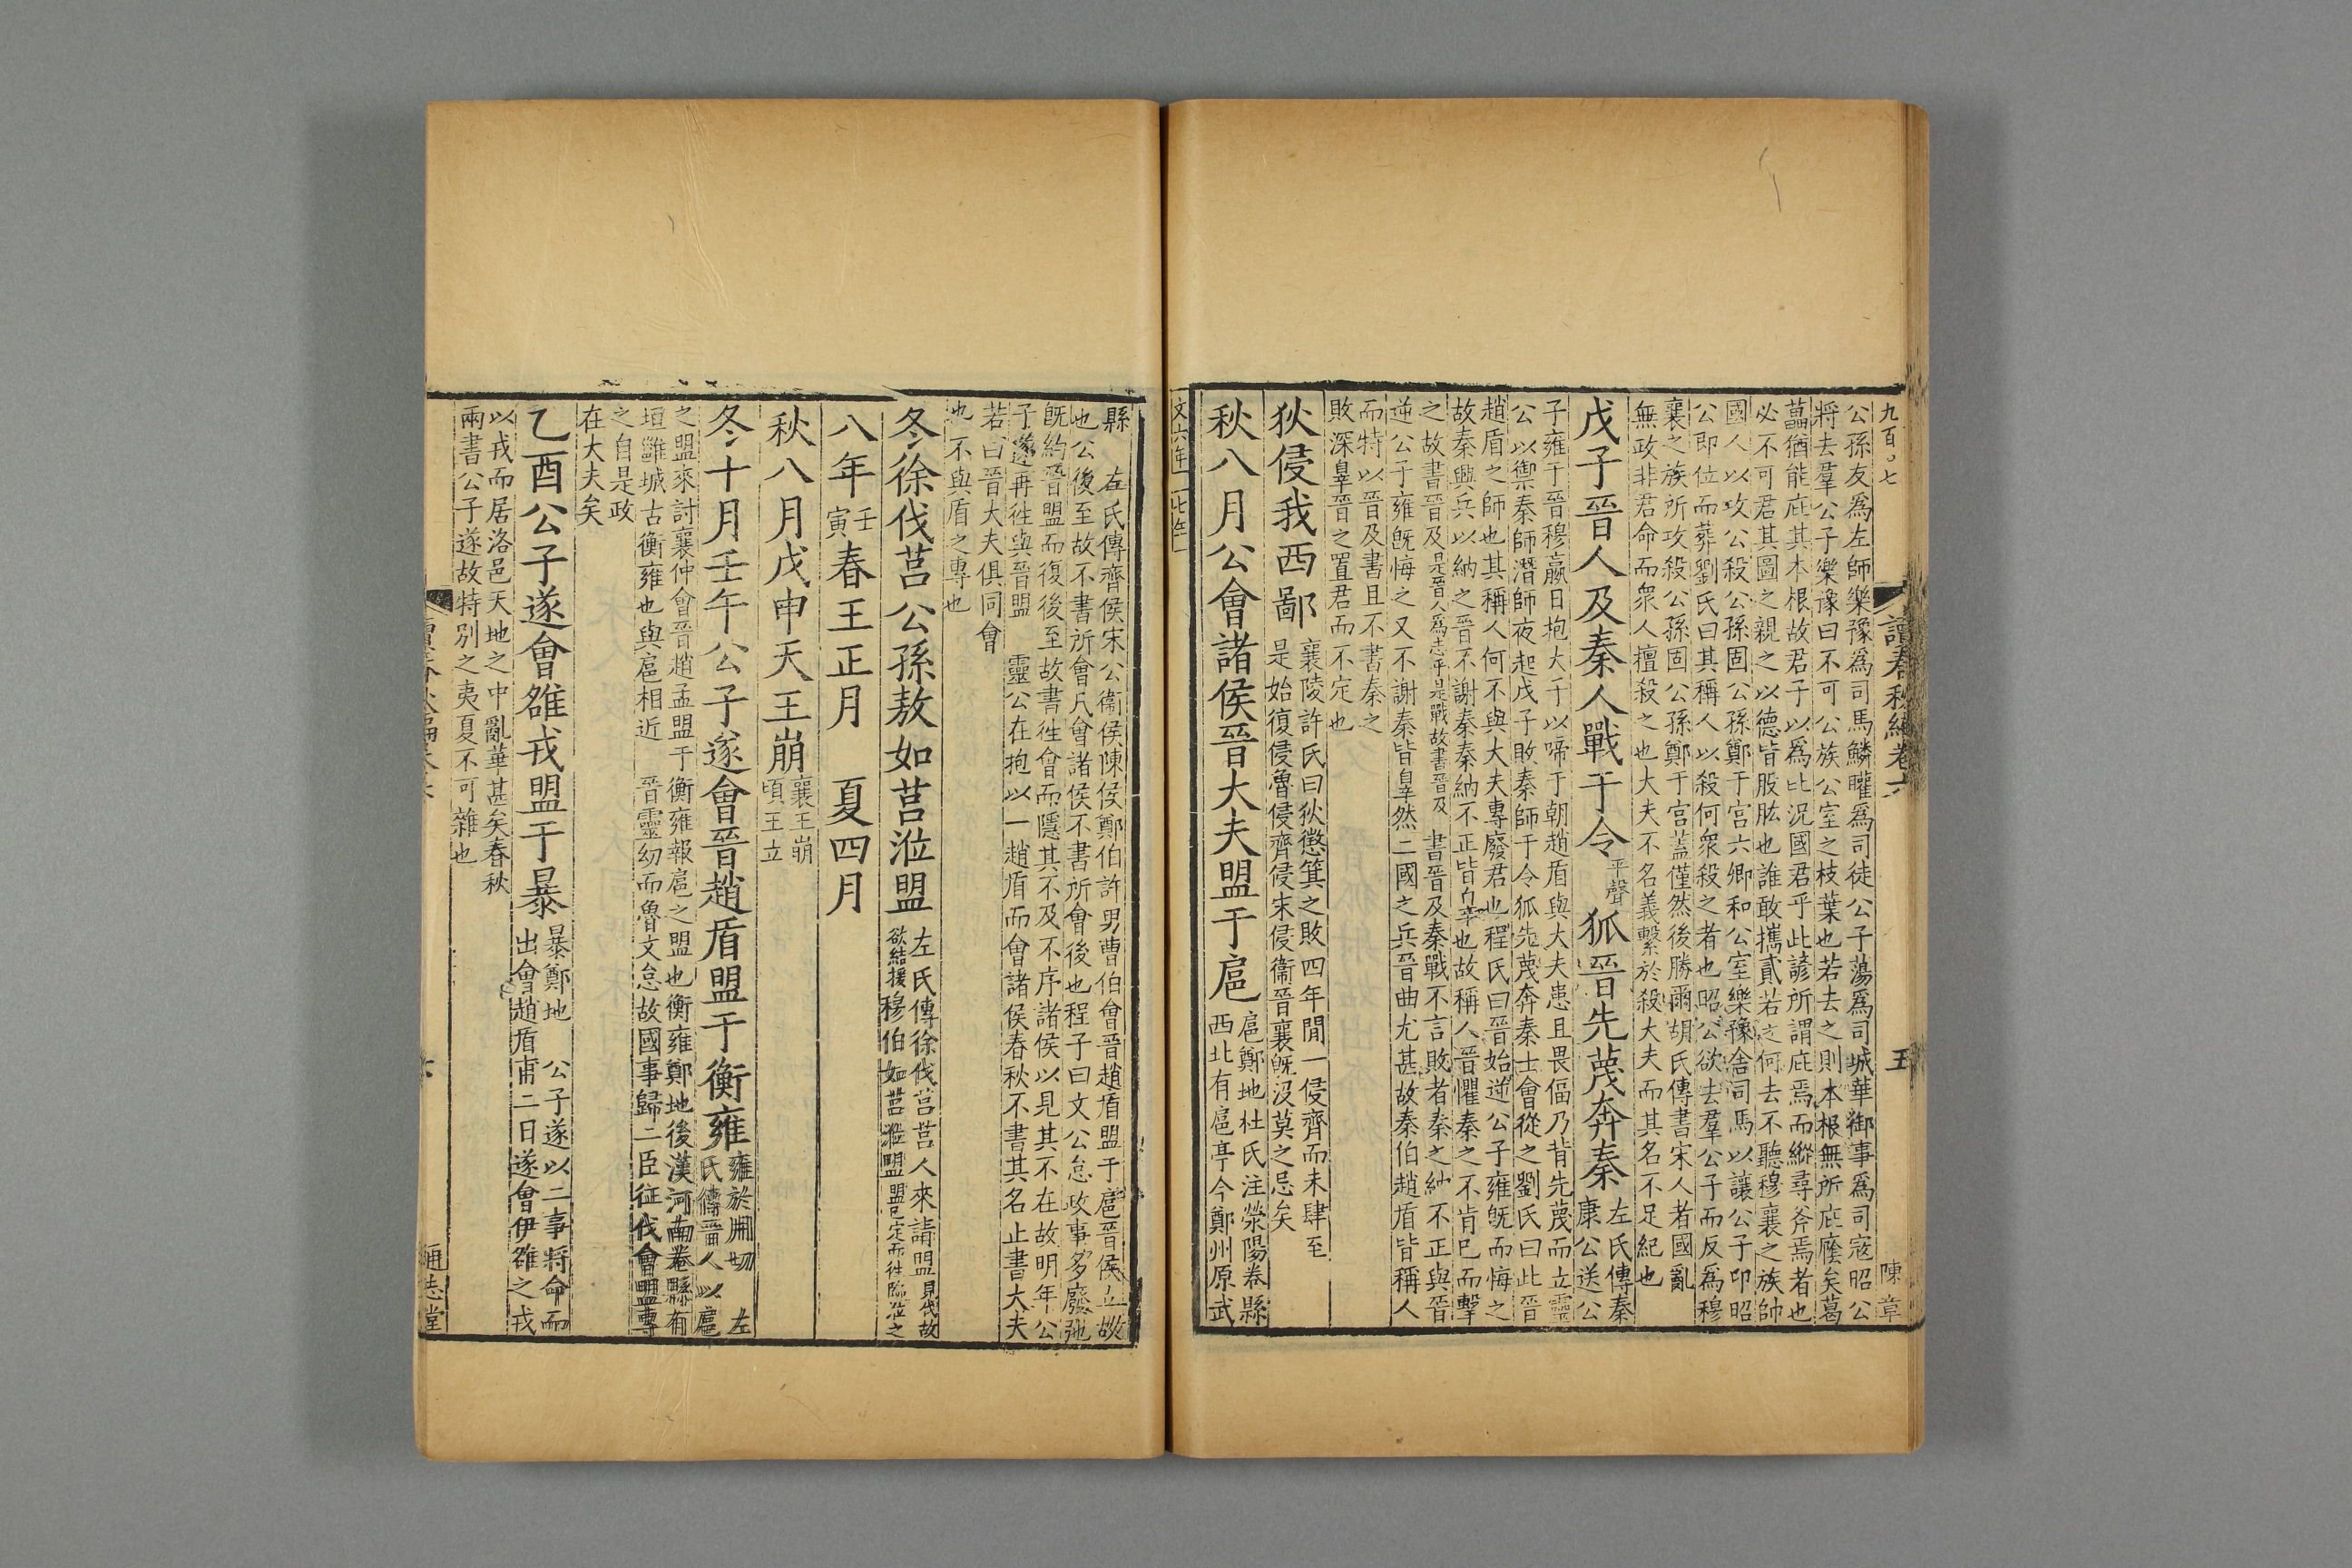 九百〇七
讀春秋編卷六
五
陳章
公孫友爲左師樂豫爲司馬鱗矔爲司徒公子蕩爲司城華御事爲司寇昭公
將去羣公子樂豫曰不可公族公室之枝葉也若去之則本根無所庇廕矣葛
藟猶能庇其本根故君子以爲比況國君乎此諺所謂庇焉而縱尋斧焉者也
必不可君其圖之親之以德皆股肱也誰敢攜貳若之何去不聽穆襄之族帥
國人以攻公殺公孫固公孫鄭于宮六卿和公室樂豫舍司馬以讓公子卬昭
公即位而葬劉氏曰其稱人以殺何衆殺之者也昭公欲去羣公子而反爲穆
襄之族所攻殺公孫固公孫鄭于宮蓋僅然後勝爾胡氏傳書宋人者國亂
無政非君命而衆人擅殺之也大夫不名義繫於殺大夫而其名不足紀也
戊子晉人及秦人戰于令平聲狐晉先蔑奔秦左氏傳秦
康公送公
子雍于晉穆嬴日抱大子以啼于朝趙盾與大夫患且畏偪乃背先蔑而立靈
公以禦秦師潛師夜起戊子敗秦師于令狐先蔑奔秦士會從之劉氏曰此晉
趙盾之師也其稱人何不與大夫專廢君也程氏曰晉始逆公子雍旣而悔之
故秦興兵以納之晉不謝秦秦納不正皆辠也故稱人晉懼秦之不肯已而擊
之故書晉及是晉人爲志乎是戰故書晉及書晉及秦戰不言敗者秦之納不正與晉
逆公子雍旣悔之又不謝秦皆辠然二國之兵晉曲尤甚故秦伯趙盾皆稱人
而特以晉及書且不書秦之
敗深辠晉之置君而不定也
狄侵我西鄙襄陵許氏曰狄懲箕之敗四年閒一侵齊而未肆至
是始復侵魯侵齊侵宋侵衞晉襄旣沒莫之忌矣
秋八月公會諸侯晉大夫盟于扈扈鄭地杜氏注滎陽卷縣
西北有扈亭今鄭州原武
縣　左氏傳齊侯宋公衞侯陳侯鄭伯許男曹伯會晉趙盾盟于扈晉侯立故
也公後至故不書所會凡會諸侯不書所會後也程子曰文公怠政事多廢弛
旣約晉盟而復後至故書往會而隱其不及不序諸侯以見其不在故明年公
子遂再往與晉盟　靈公在抱以一趙盾而會諸侯春秋不書其名止書大夫
若曰晉大夫俱同會
也不與盾之專也
冬徐伐莒公孫敖如莒涖盟左氏傳徐伐莒莒人來請盟見伐故
欲結援穆伯如莒涖盟盟已定而往臨涖之
八年壬寅春王正月　夏四月
秋八月戊申天王崩襄王崩
頃王立
冬十月壬午公子遂會晉趙盾盟于衡雍雍於用切　左
氏傳晉人以扈
之盟來討襄仲會晉趙孟盟于衡雍報扈之盟也衡雍鄭地後漢河南卷縣有
垣雝城古衡雍也與扈相近　晉靈幼而魯文怠故國事歸二臣征伐會盟專
之自是政
在大夫矣
乙酉公子遂會雒戎盟于暴暴鄭地　公子遂以二事將命而
出會趙盾甫二日遂會伊雒之戎
以戎而居洛邑天地之中亂華甚矣春秋
兩書公子遂故特別之夷夏不可雜也
通志堂